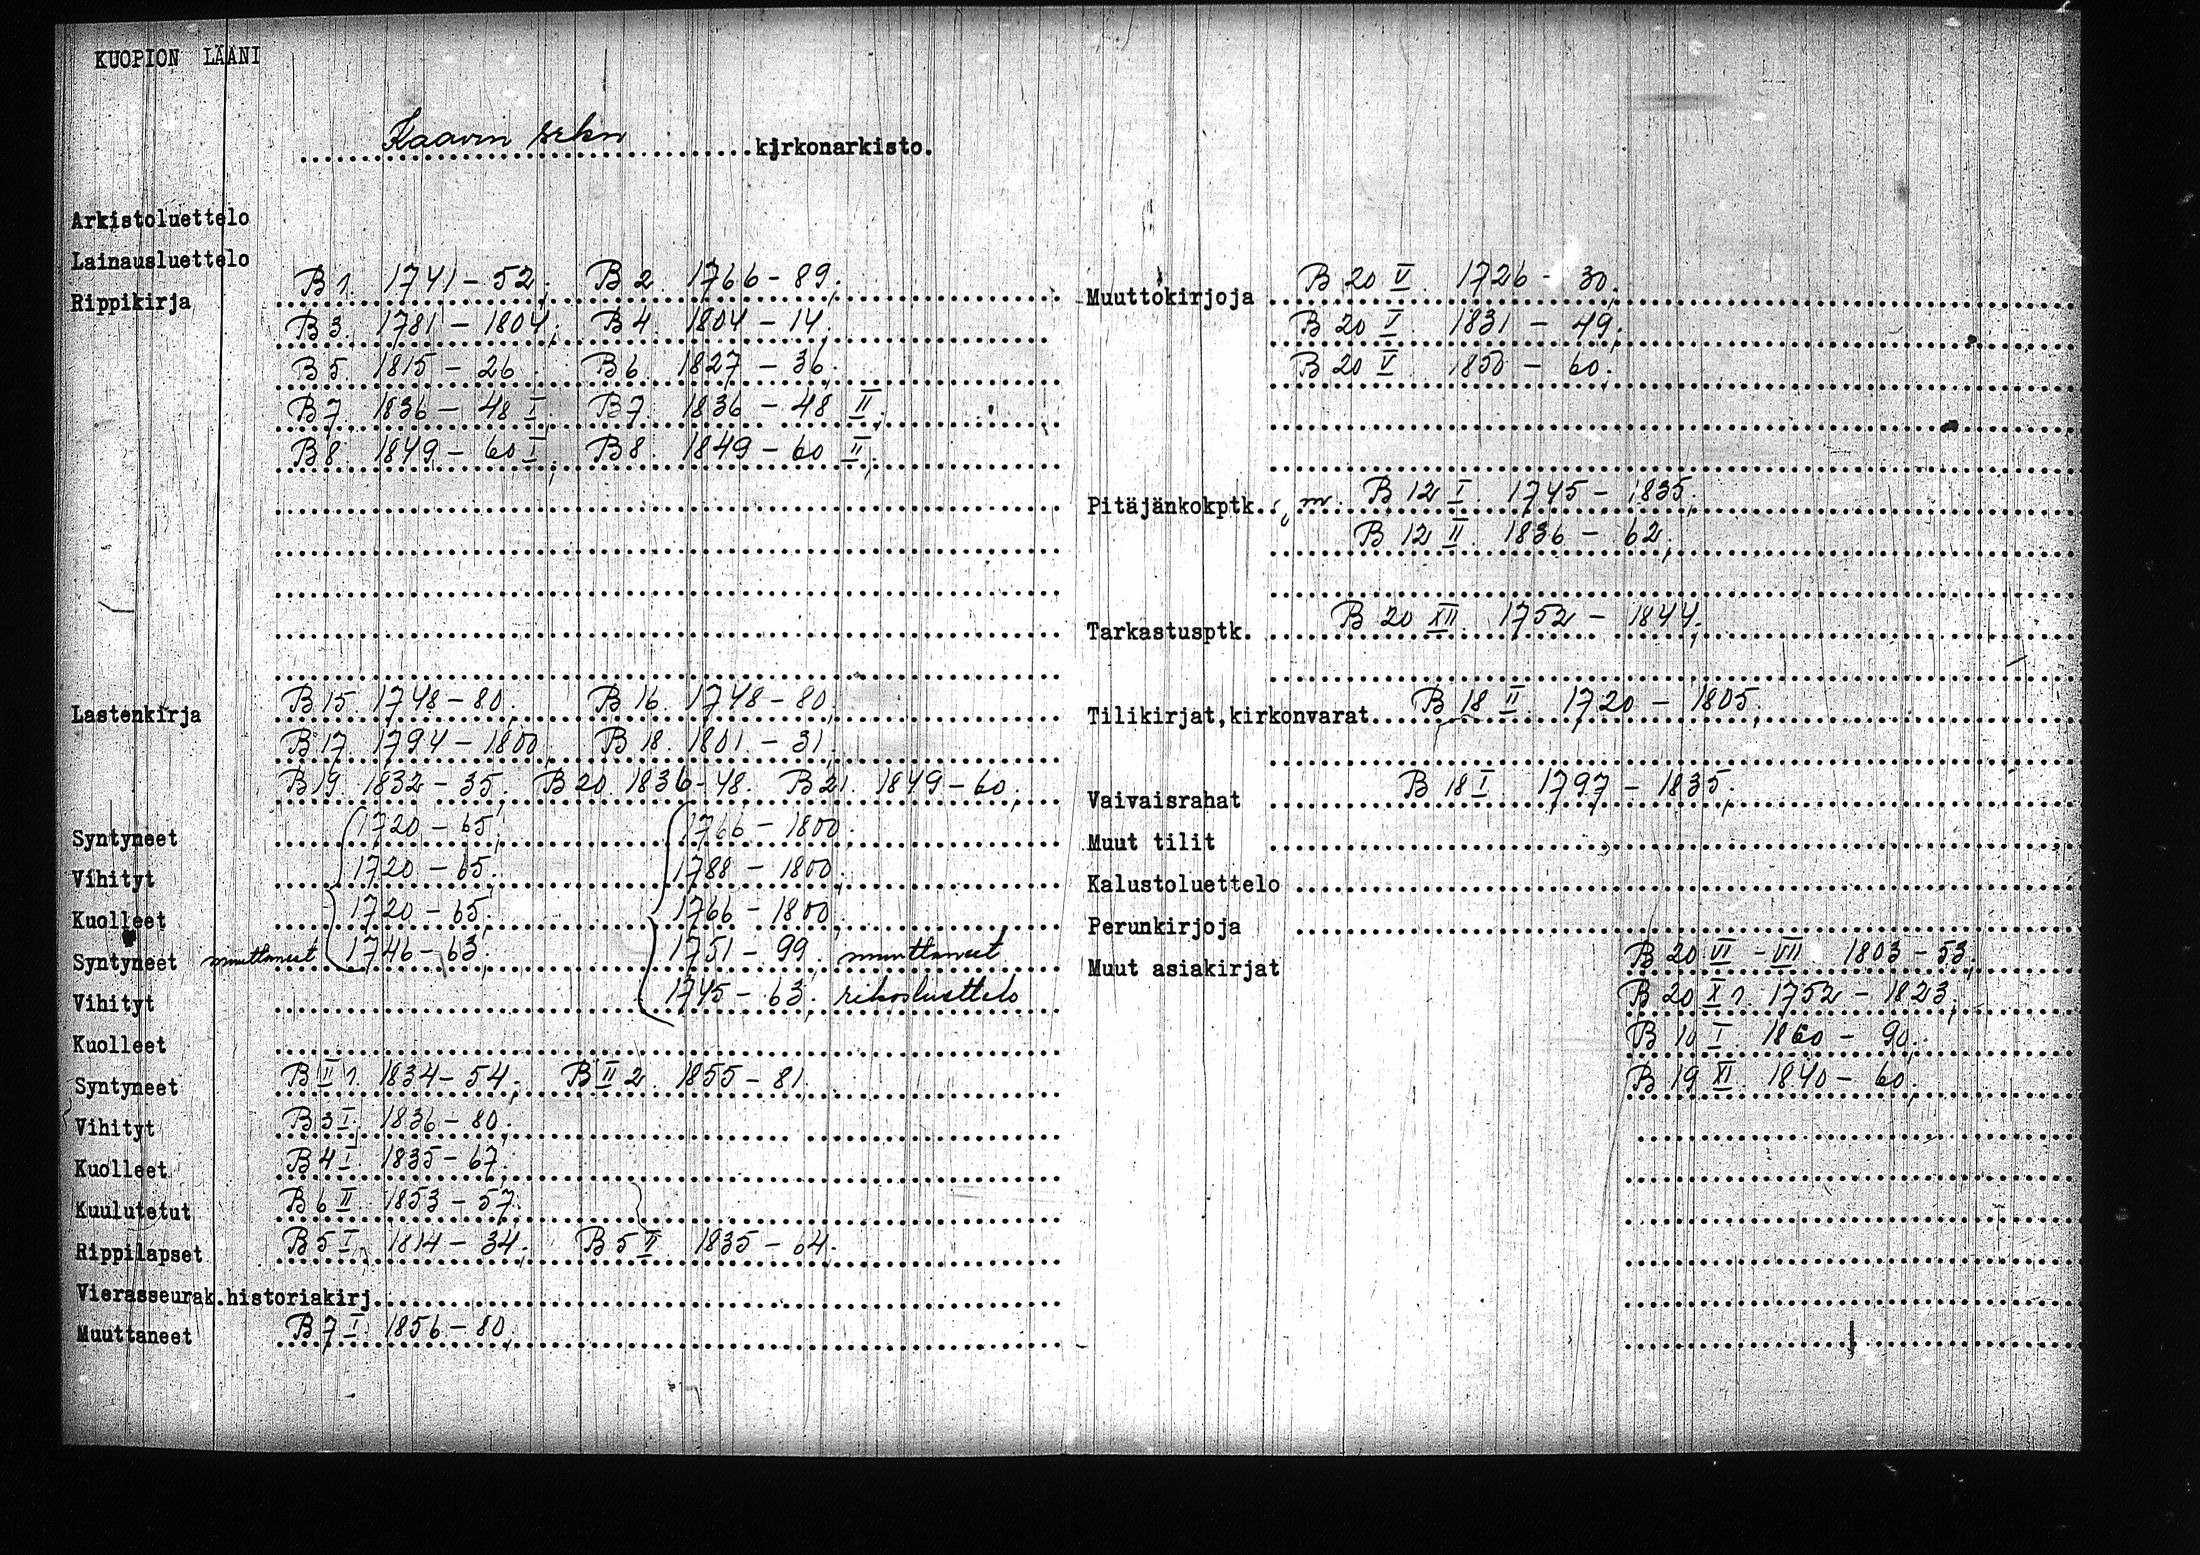 KUOPION LÄÄNI
Kaavin srkn kirkonarkisto.
Arkistoluettelo
Lainausluettelo
Rippikirja B 1. 1741-52; B 2. 1766-89;
B 3. 1781-1804; B 4. 1804-14;
B 5. 1815-26. B 6. 1827-36;
B 7. 1836-48 I; B 7. 1836-48 II;
B 8. 1849-60 I; B 8. 1849-60 II;
Lastenkirja B 15. 1748-80; B 16. 1748-80;
B 17. 1794-1800; B 18. 1801-31;
B 19. 1832-35; B 20. 1836-48. B 21. 1849-60;
Syntyneet 1720-65; 1766-1800;
Vihityt 1720-65; 1788-1800;
Kuolleet 1720-65; 1766-1800;
Syntyneet muuttaneet 1746-63; 1751-99; muuttaneet
Vihityt 1745-63; rikosluettelo
Kuolleet
Syntyneet B II 1. 1834-54; B II 2. 1855-81.
Vihityt B 3 I. 1836-80;
Kuolleet B 4 I. 1835-67;
Kuulutetut B 6 II. 1853-57.
Rippilapset B 5 I. 1814-34; B 5 II 1835-64.
Vierasseurak.historiakirj.
Muuttaneet B 7 I. 1856-80;
Muuttokirjoja B 20 V. 1726-30;
B 20 V. 1831-49;
B 20 V. 1850-60;
Pitäjänkokptk. B 12 I. 1745-1835;
B 12 II. 1836-62;
Tarkastusptk. B 20 XII. 1752-1844;
Tilikirjat,kirkonvarat B 18 II. 1720-1805;
Vaivaisrahat B 18 I. 1797-1835;
Muut tilit
Kalustoluettelo
Perunkirjoja
Muut asiakirjat B 20 VI-VII. 1803-53;
B 20 X 1. 1752-1823;
B 10 I. 1860-90;
B 19 XI. 1840-60;